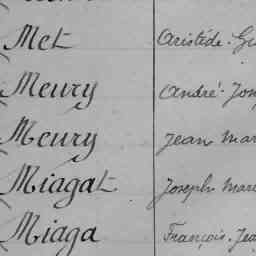 Met Aristide-Gu
Meury André-Jos
Meury Jean Mar
Miagat Joseph Mari
Miaga François, Jea